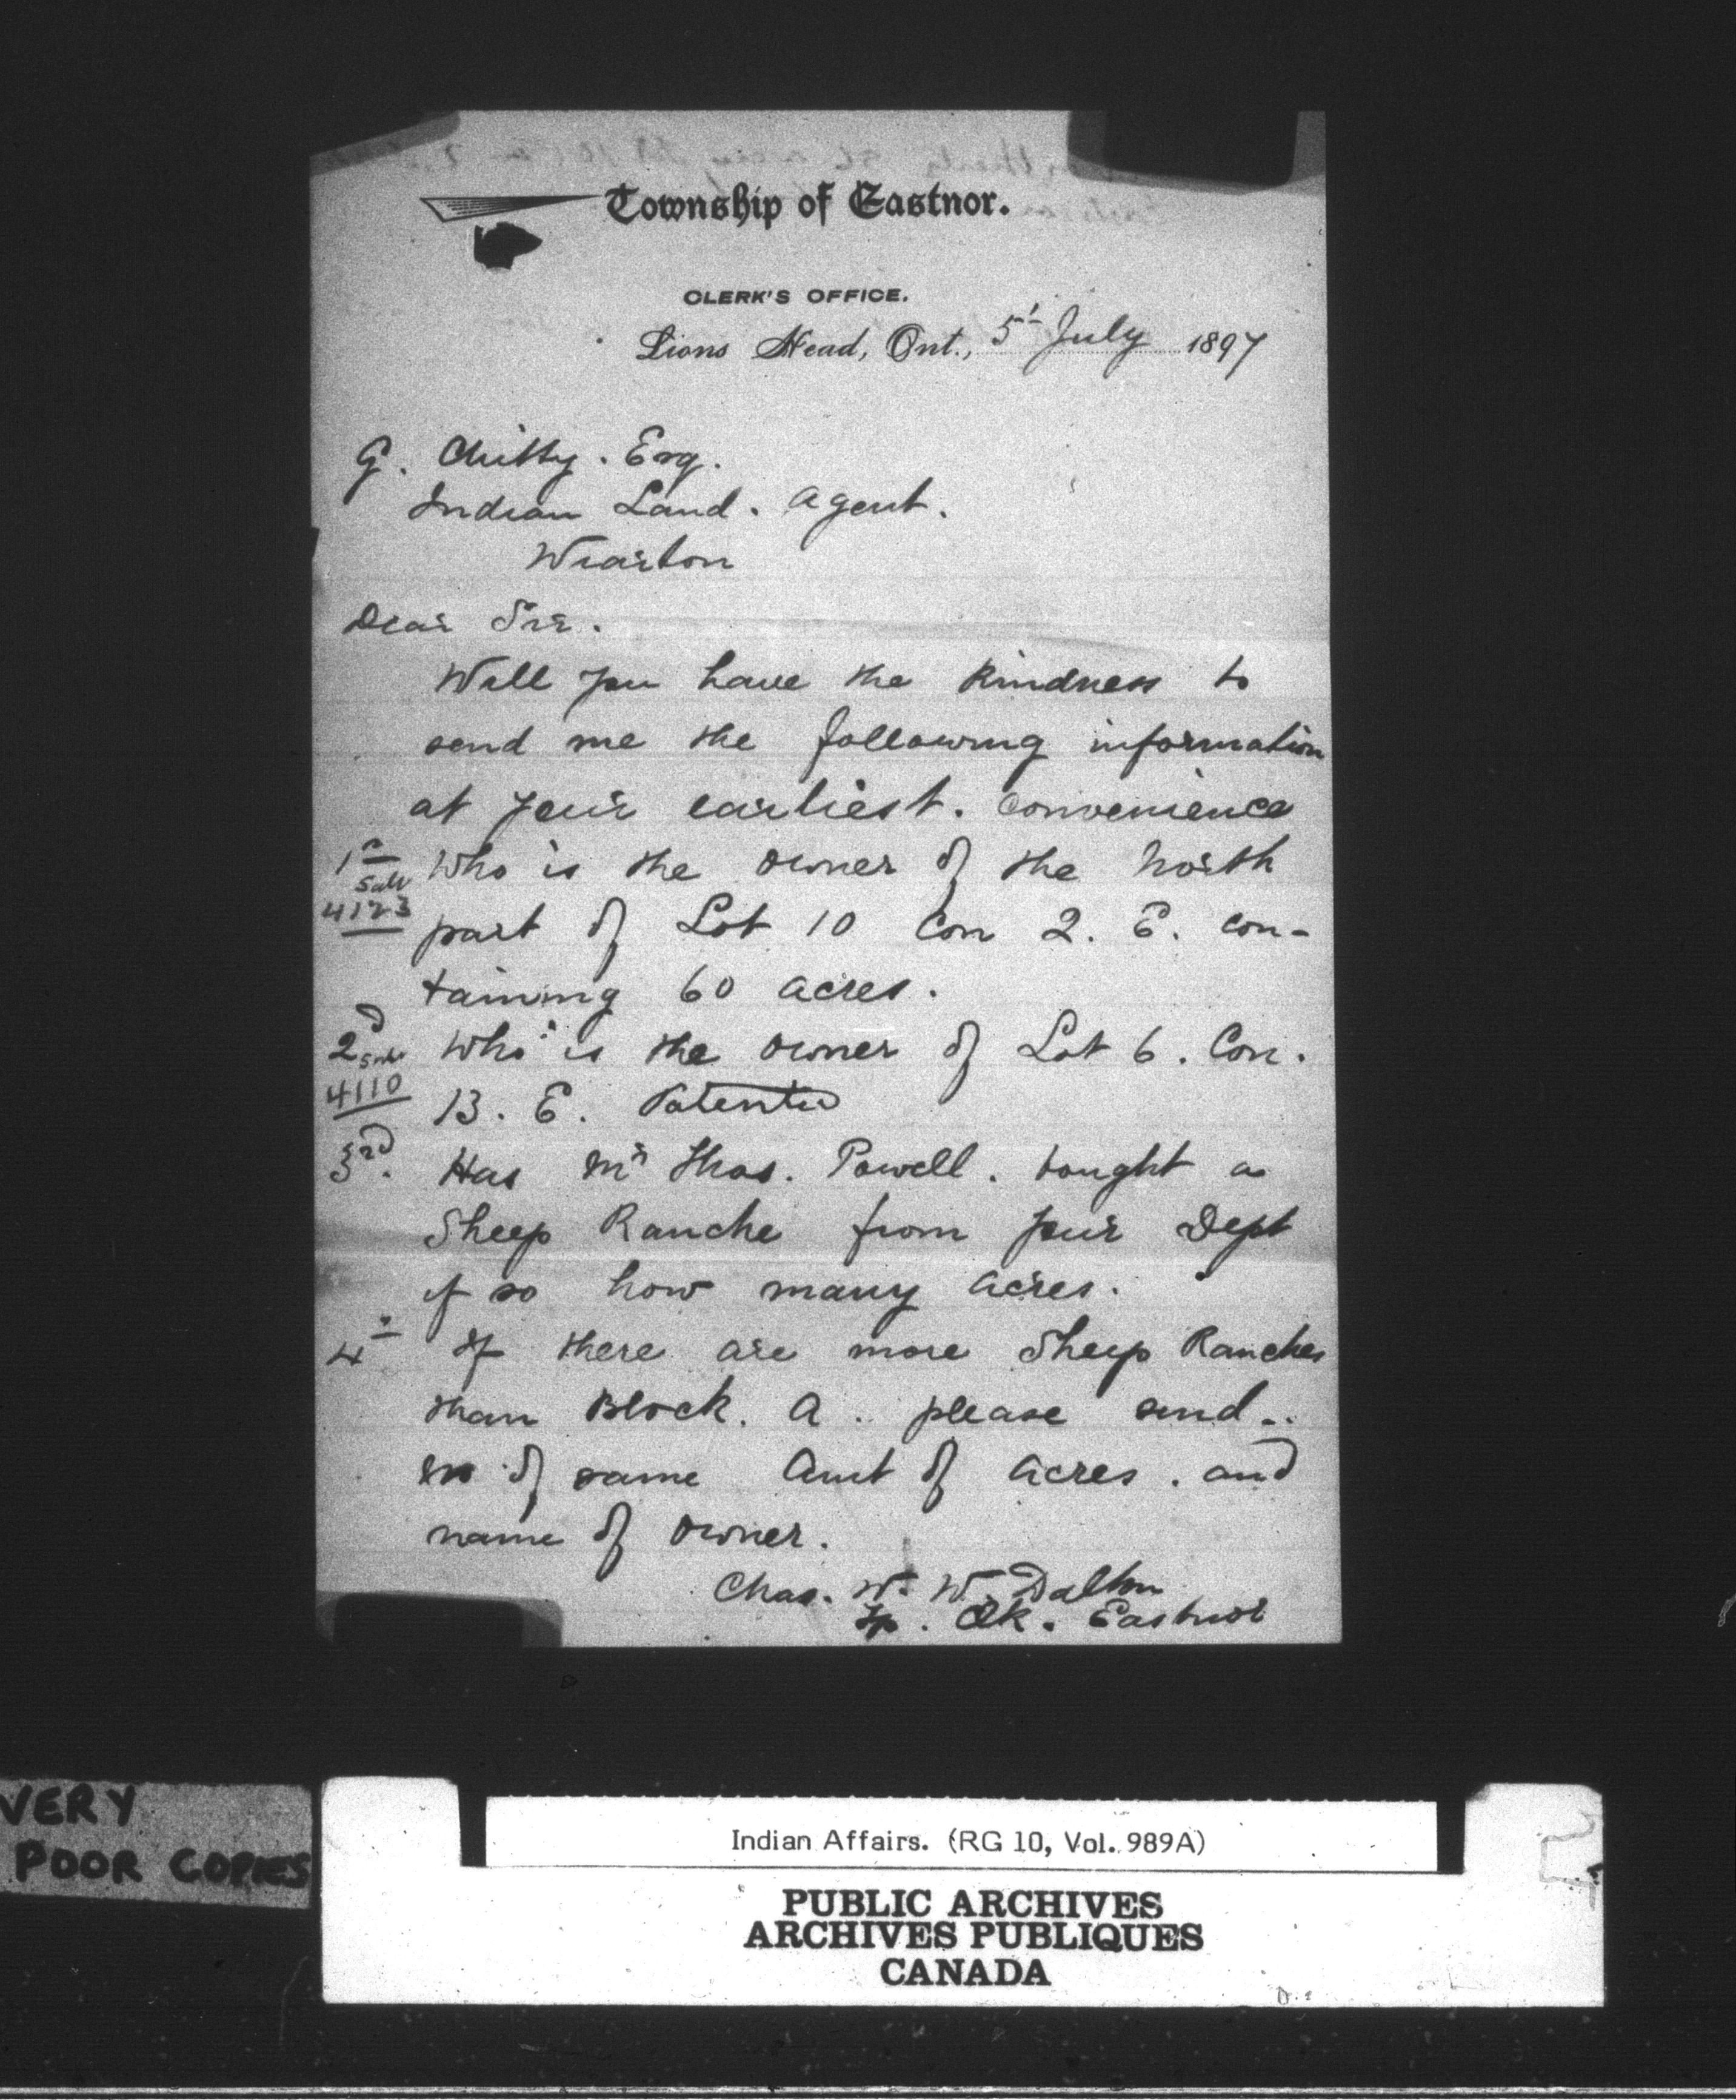 Township of Eastnor.
CLERK'S OFFICE.
Lions Head, Ont., 5th July 1897
G. Chitty. Esq.
Indian Land. Agent.
Wiarton
Dear Sir.
Will you have the kindness to
send me the following information
at your earliest. convenience
1st Who is the owner of the North
Sale
4123 part of Lot 10 Con 2. E. con-
taining 60 acres.
2d Sale Who is the owner of Lot 6. Con.
4110 13. E. Patented
3rd. Has Mr Thos. Powell. bought a
Sheep Ranche from your Dept
if so how many acres.
4th If there are more Sheep Ranches
than Block. A. please send..
of same Amt of acres. and
name of owner.
Chas. W. W. Dalton
Tp. Clk. Eastnor
VERY
POOR COPIES
Indian Affairs. (RG 10, Vol. 989A)
PUBLIC ARCHIVES
ARCHIVES PUBLIQUES
CANADA